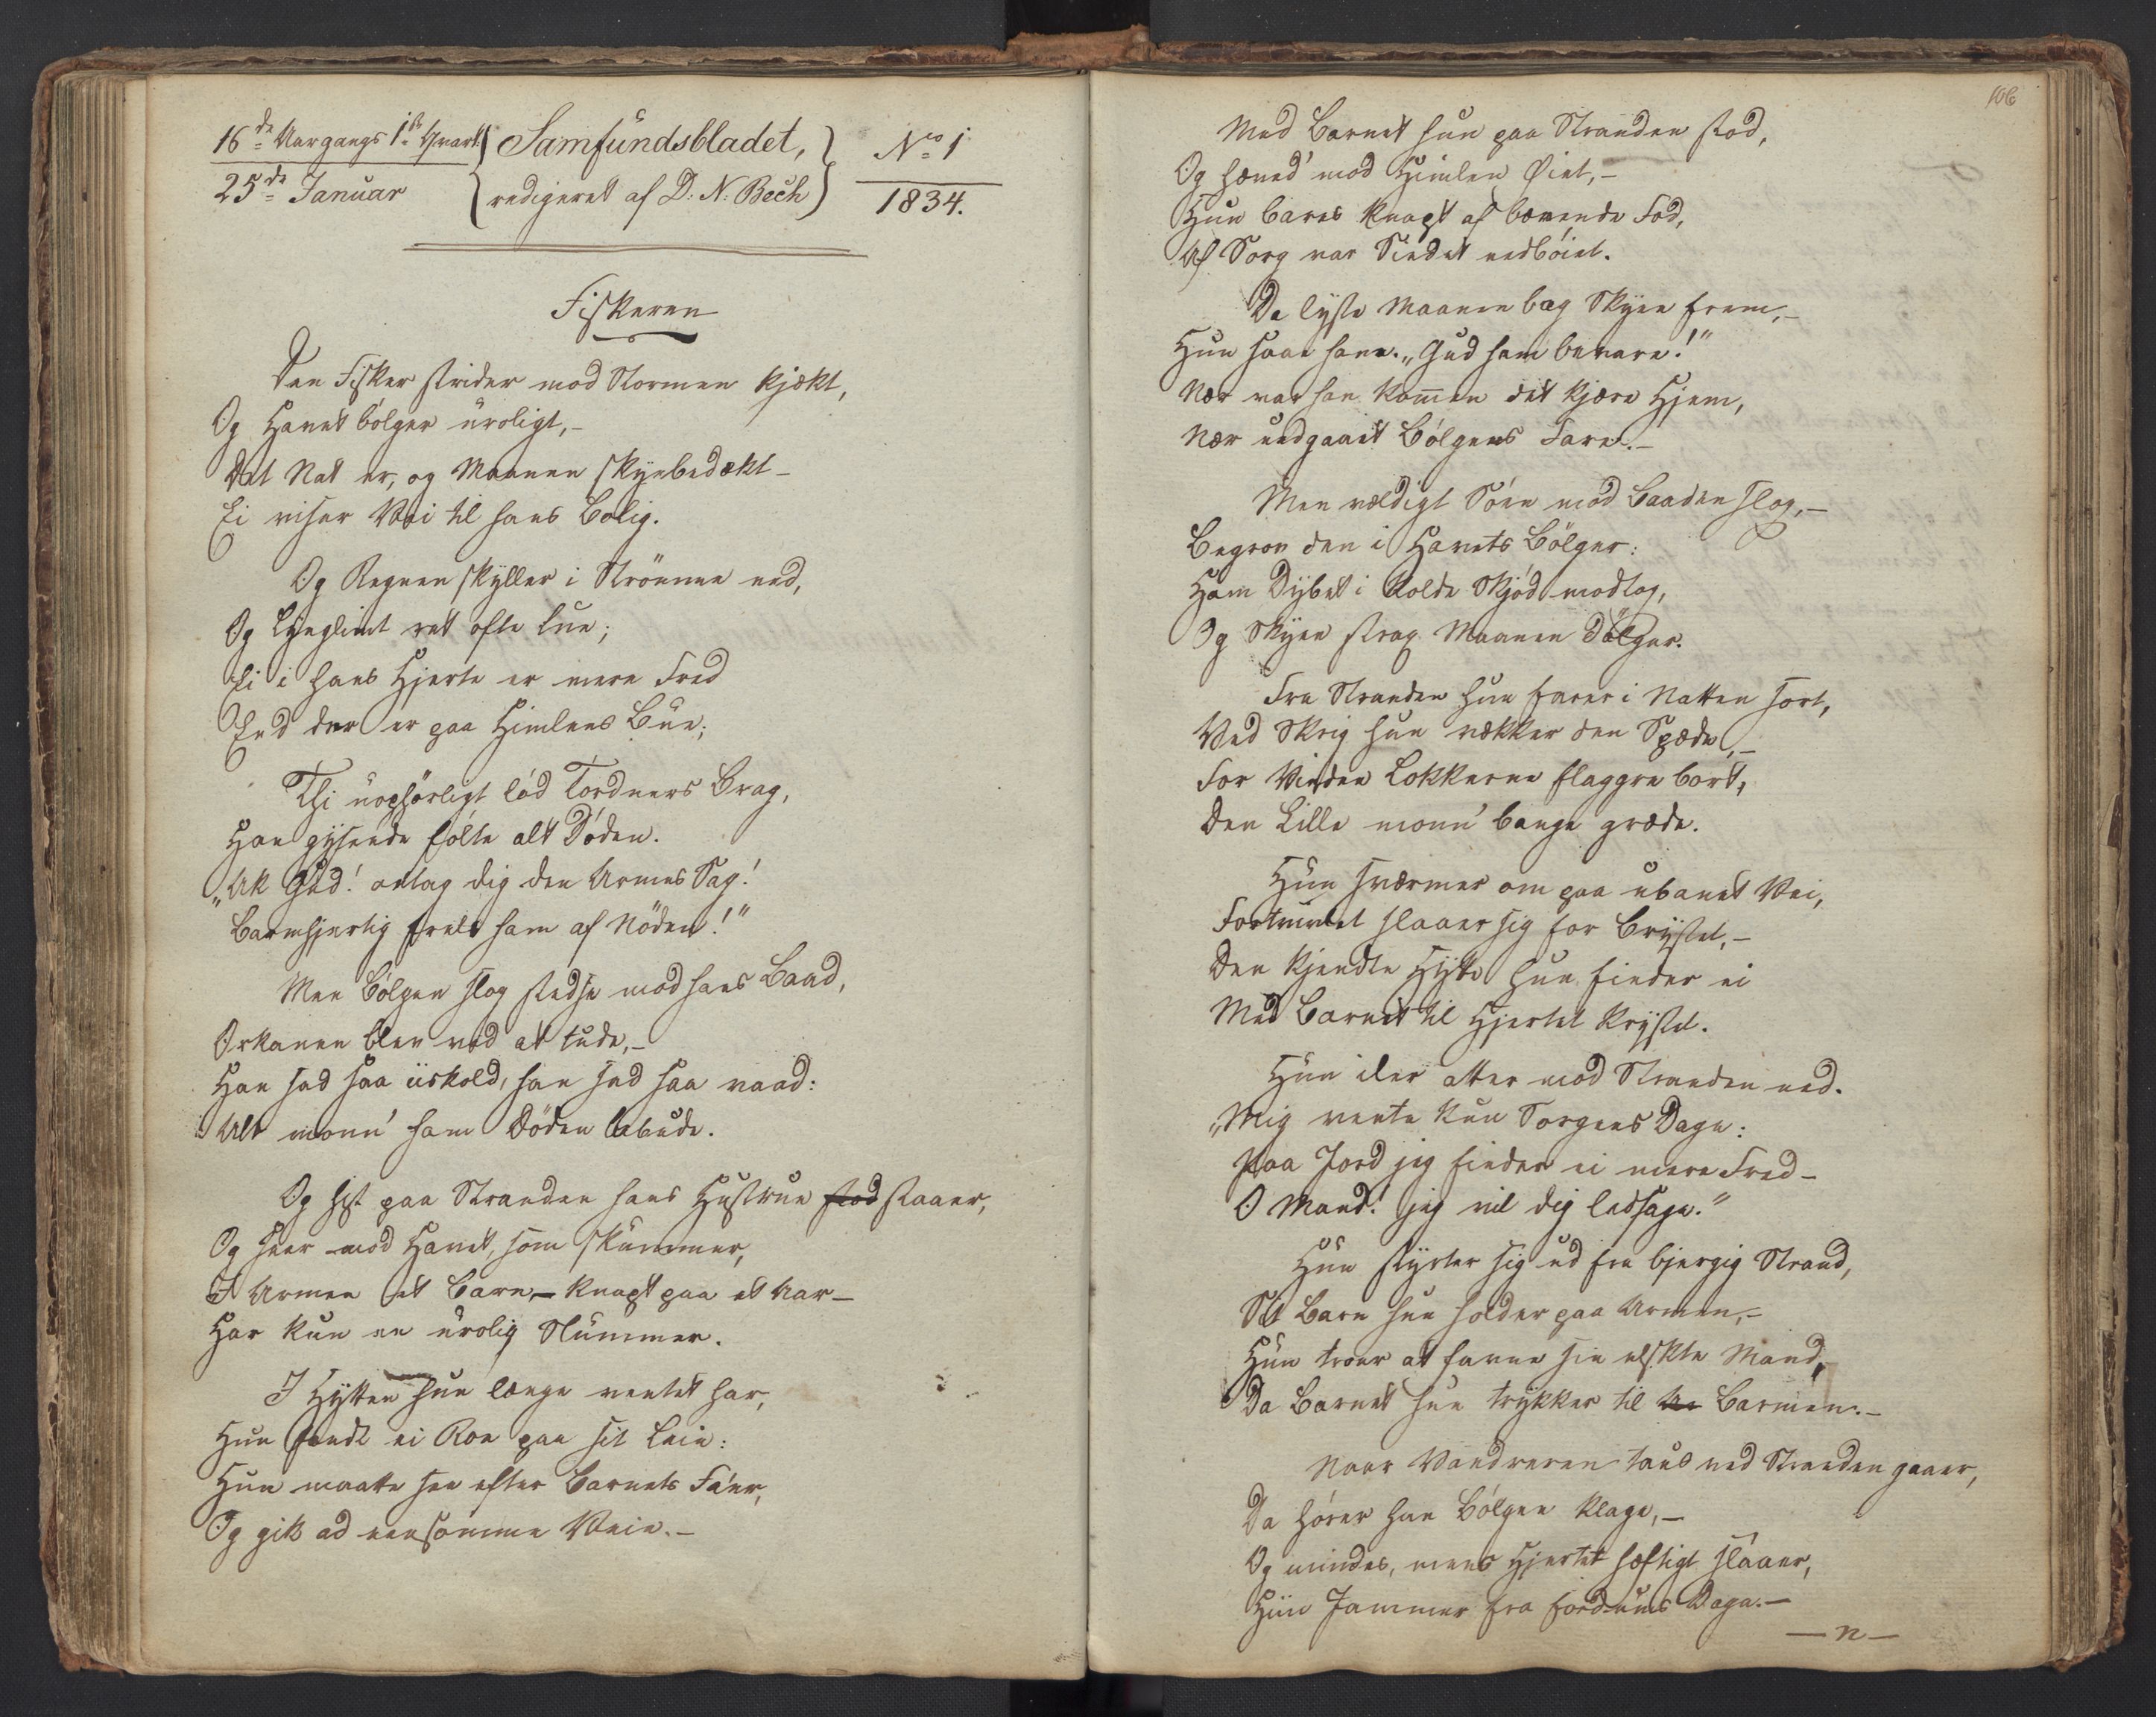 16de Aargangs 1ste Qvart.
25de Januar
Samfundsbladet,
redigeret af D. N. Bech
No 1
1834.
Fiskeren
Den Fisker strider mod Stormen kjækt,
Og Havet bölger uroligt, –
Det Nat er, og Maanen skyebedækt –
Ei viser Vei til hans Bolig.
Og Regnen skyller i Strömme ned,
Og Lynglimt ret ofte lue;
Ei i hans Hjerte er mere Fred
End der er paa Himlens Bue;
Thi uophörligt löd Tordners Brag,
Han gysende fölte alt Döden.
„Ak Gud! antag dig den Armes Sag!
Barmhjertig frels ham af Nöden!"
Men Bölgen slog stedse mod hans Baad,
Orkanen blev ved at tude, –
Han sad saa iiskold, han sad saa vaad:
Alt monn' ham Döden bebude.
Og hist paa Stranden hans Hustrue stod staaer,
Og seer mod Havet, som skummer,
I Armen et Barn – knapt paa et Aar –
Har kun en urolig Slummer.
I Hytten hun længe ventet har,
Hun fandt ei Roe paa sit Leie:
Hun maatte see efter Barnets Fa'er,
Og gik ad eensomme Veie. –
106
Med Barnet hun paa Stranden stod,
Og hæved' mod Himlen Øiet, –
Hun bares knapt af bævende Fod,
Af Sorg var Sindet nedböiet.
Da lyste Maanen bag Skyen frem, –
Hun saae ham. „Gud ham bevare!"
Nær var han kommen det kjære Hjem,
Nær undgaaet Bölgens Fare. –
Men vældigt Söen mod Baaden slog, –
Begrov den i Havets Bölger:
Ham Dybet i kolde Skjöd modtog,
Og Skyen strax Maanen dölger.
Fra Stranden hun farer i Natten sort,
Ved Skrig hun vækker den Spæde, –
For Vinden Lokkerne flaggre bort,
Den Lille monn' bange græde.
Hun sværmer om paa ubanet Vei,
Fortvivlet slaaer sig for Brystet, –
Den kjendte Hytte hun finder ei
Med Barnet til Hjertet krystet.
Hun iler atter mod Stranden ned.
„Mig vente kun Sorgens Dage:
Paa Jord jeg finder ei mere Fred –
O Mand! jeg vil dig ledsage."
Hun styrter sig ud fra bjergig Strand,
Sit Barn hun holder paa Armen, –
Hun troer at favne sin elskte Mand,
Da Barnet hun trykker til Barmen. –
Naar Vandreren taus ved Stranden gaaer,
Da hörer han Bölgen klage, –
Og mindes, mens Hjertet hæftigt slaaer,
Hiin Jammer fra fordums Dage. –
– n –